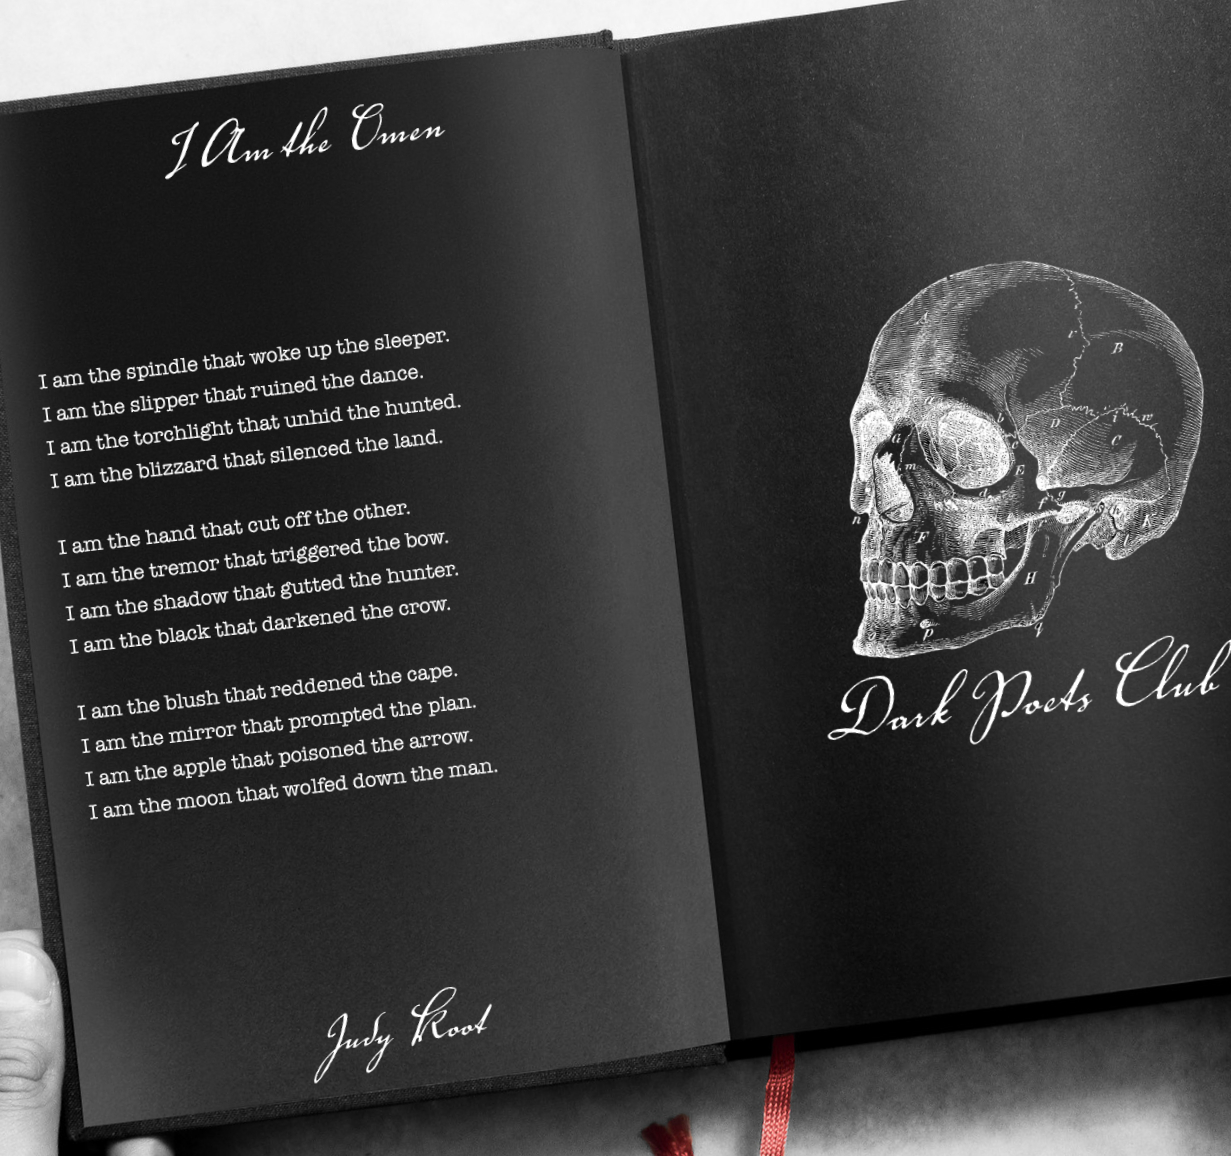 I Am the Omen
I am the spindle that woke up the sleeper.
I am the slipper that ruined the dance.
I am the torchlight that unhid the hunted.
I am the blizzard that silenced the land.
I am the hand that cut off the other.
I am the tremor that triggered the bow.
I am the shadow that gutted the hunter.
I am the black that darkened the crow.
I am the blush that reddened the cape.
I am the mirror that prompted the plan.
I am the apple that poisoned the arrow.
I am the moon that wolfed down the man.
Judy Root
A
r
B
a
b
D
i
w
C
G
c
m
E
d
g
f
n
h
K
F
H
p
q
Dark Poets Club